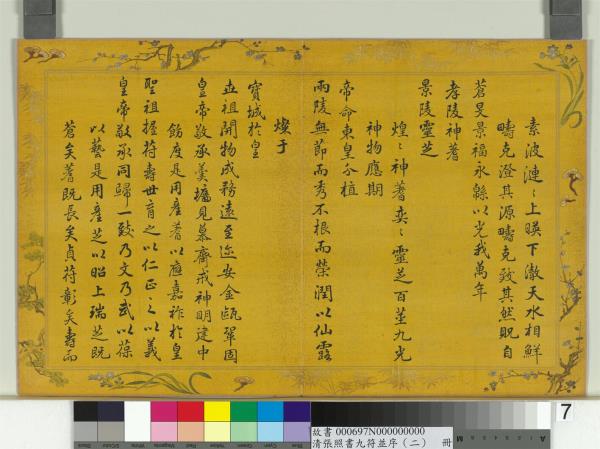 素波漣〻上暎下澈天水相鮮
疇克澄其源疇克致其然貺自
蒼旻景福永緜以光我萬年
孝陵神蓍
景陵靈芝
煌〻神蓍奕〻靈芝百莖九光
神物應期
帝命東皇分植
兩陵無節而秀不根而榮潤以仙露
燦于
寳城於皇
世祖開物成務遠至迩安金甌鞏固
皇帝敬承羹墻見慕齋戒神明建中
飭度是用產蓍以應嘉祚於皇
聖祖握符壽世育之以仁正之以義
皇帝敬承同歸一致乃文乃武以葆
以藝是用產芝以昭上瑞芝既
蒼矣蓍既長矣貞符彰矣壽而
7
故書 000697N000000000
清張照書九符並序（二） 冊